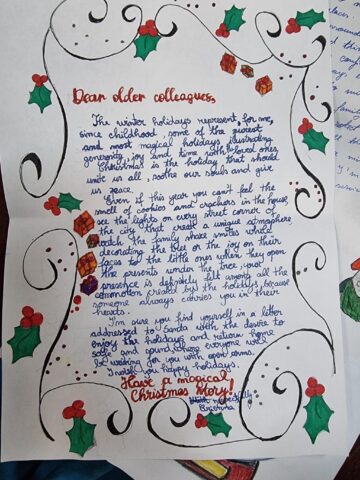 Dear older colleagues,
The winter holidays represent for me,
since childhood, some of the purest
and most magical holidays illustrating
generosity, joy and time with loved ones.
Christmas is the holiday that should
unite us all, soothe our souls and give
us peace.
Even if this year you can't feel the
smell of cookies and crackers in the house,
see the lights on every street corner of
the city that creat a unique atmosphere
watch the family share smiles while
decorating the tree or the joy on their
faces of the little ones when they open
the presents under the tree, your
presence is definitely felt among all the
commotion created by the holidays, because
someone always carries you in their
hearts.
I'm sure you find yourself in a letter
addressed to Santa with the desire to
enjoy the holidays and return home
safe and sound where everyone will
be waiting for you with open arms.
I wish you happy holidays
Have a magical
Christmas story!
respectfully